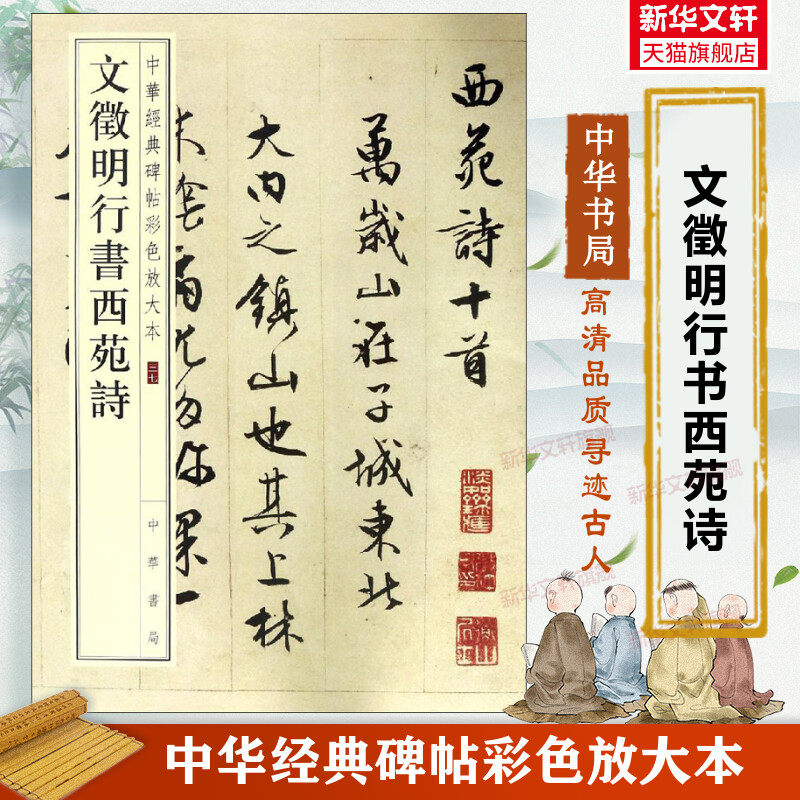 新华文轩
天猫旗舰店
文徵明行书西苑诗
中华书局
高清品质寻迹古人
中華經典碑帖彩色放大本
三七
文徵明行書西苑詩
中華書局
西苑詩十首
萬歲山在子城東北
大内之鎮山也其上林
木
新华文轩旗舰
新华文轩旗舰
新华文轩旗舰
中华经典碑帖彩色放大本